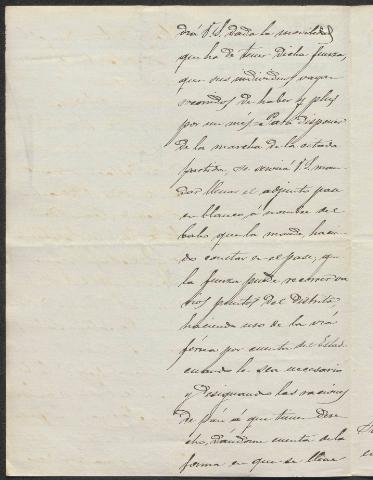 drá V.S. dada la movilidad
que ha de tener dicha fuerza,
que sus individuos vayan
socorridos de haber y plus
por un mes. Para disponer
de la marcha de la citada
partida, se servirá V.S. man
dar llenar el adjunto pase
en blanco, á nombre del
cabo que la mande, hacien
do constar en el pase, que
la fuerza puede recorrer va
rios puntos del Distrito
haciendo uso de la vía
férrea por cuenta del Estado
cuando le sea necesario
y designando las raciones
de pan á que tiene dere
cho, dándome cuenta de la
forma en que se lleve